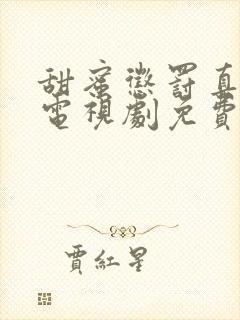 甜蜜懲罰真
電視劇免費
賈紅星